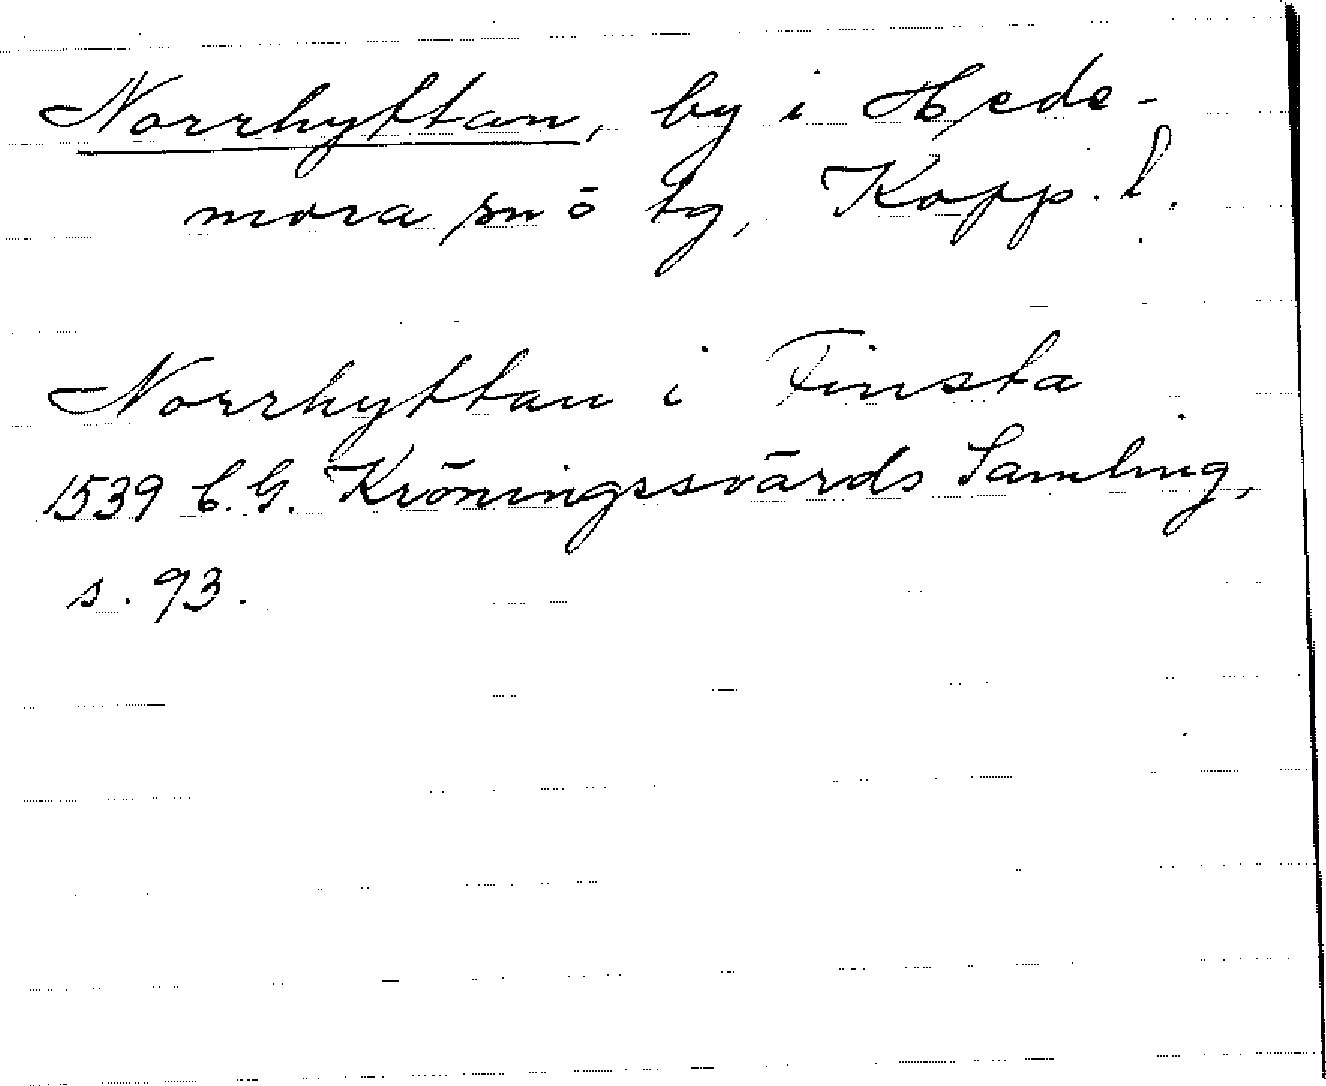 Norrhyttan, by i Hede-
mora sn ö tg, Kopp. l.
Norrhyttan i Finsta
1539 C.G. Kröningssvärds Samling,
s. 93.